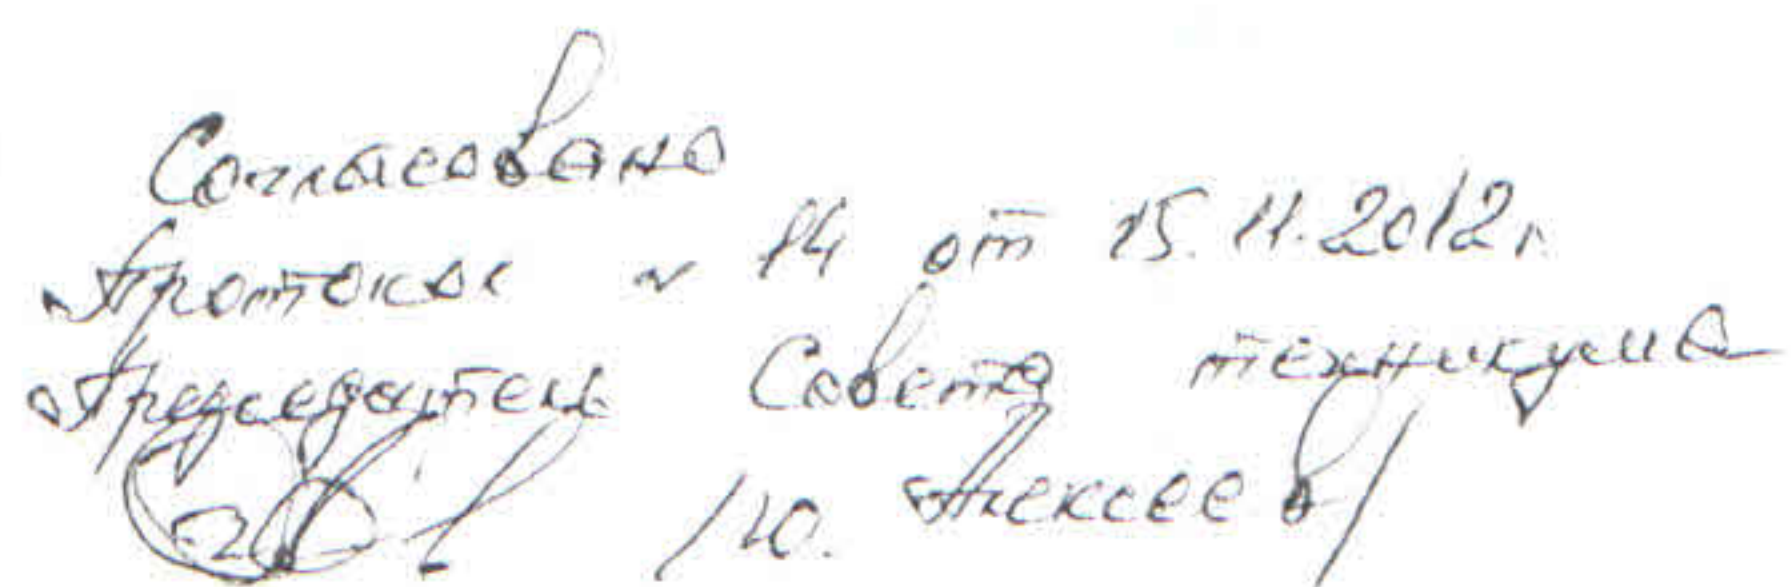 Согласовано
Протокол № 14 от 15.11.2012г.
Председатель Совета техникума
/Ю. Алексеев/